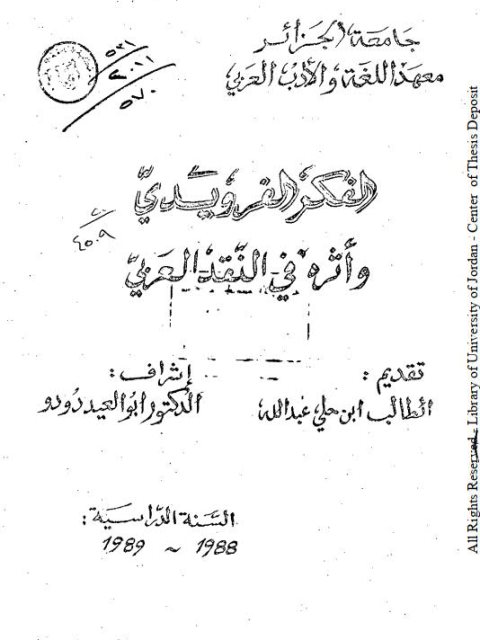 جامعة الجزائر
معهد اللغة والأدب العربي
٥٣١
٢٠١١
٥٧٠
الفكر الفرويديّ
وأثره في النّقد العربيّ
٤٥٠٩
تقديم :
الطالب ابن حلي عبدالله
إشراف :
الدكتور ابو العيد دودو
السّنة الدّراسية :
1988 ~ 1989
All Rights Reserved - Library of University of Jordan - Center of Thesis Deposit